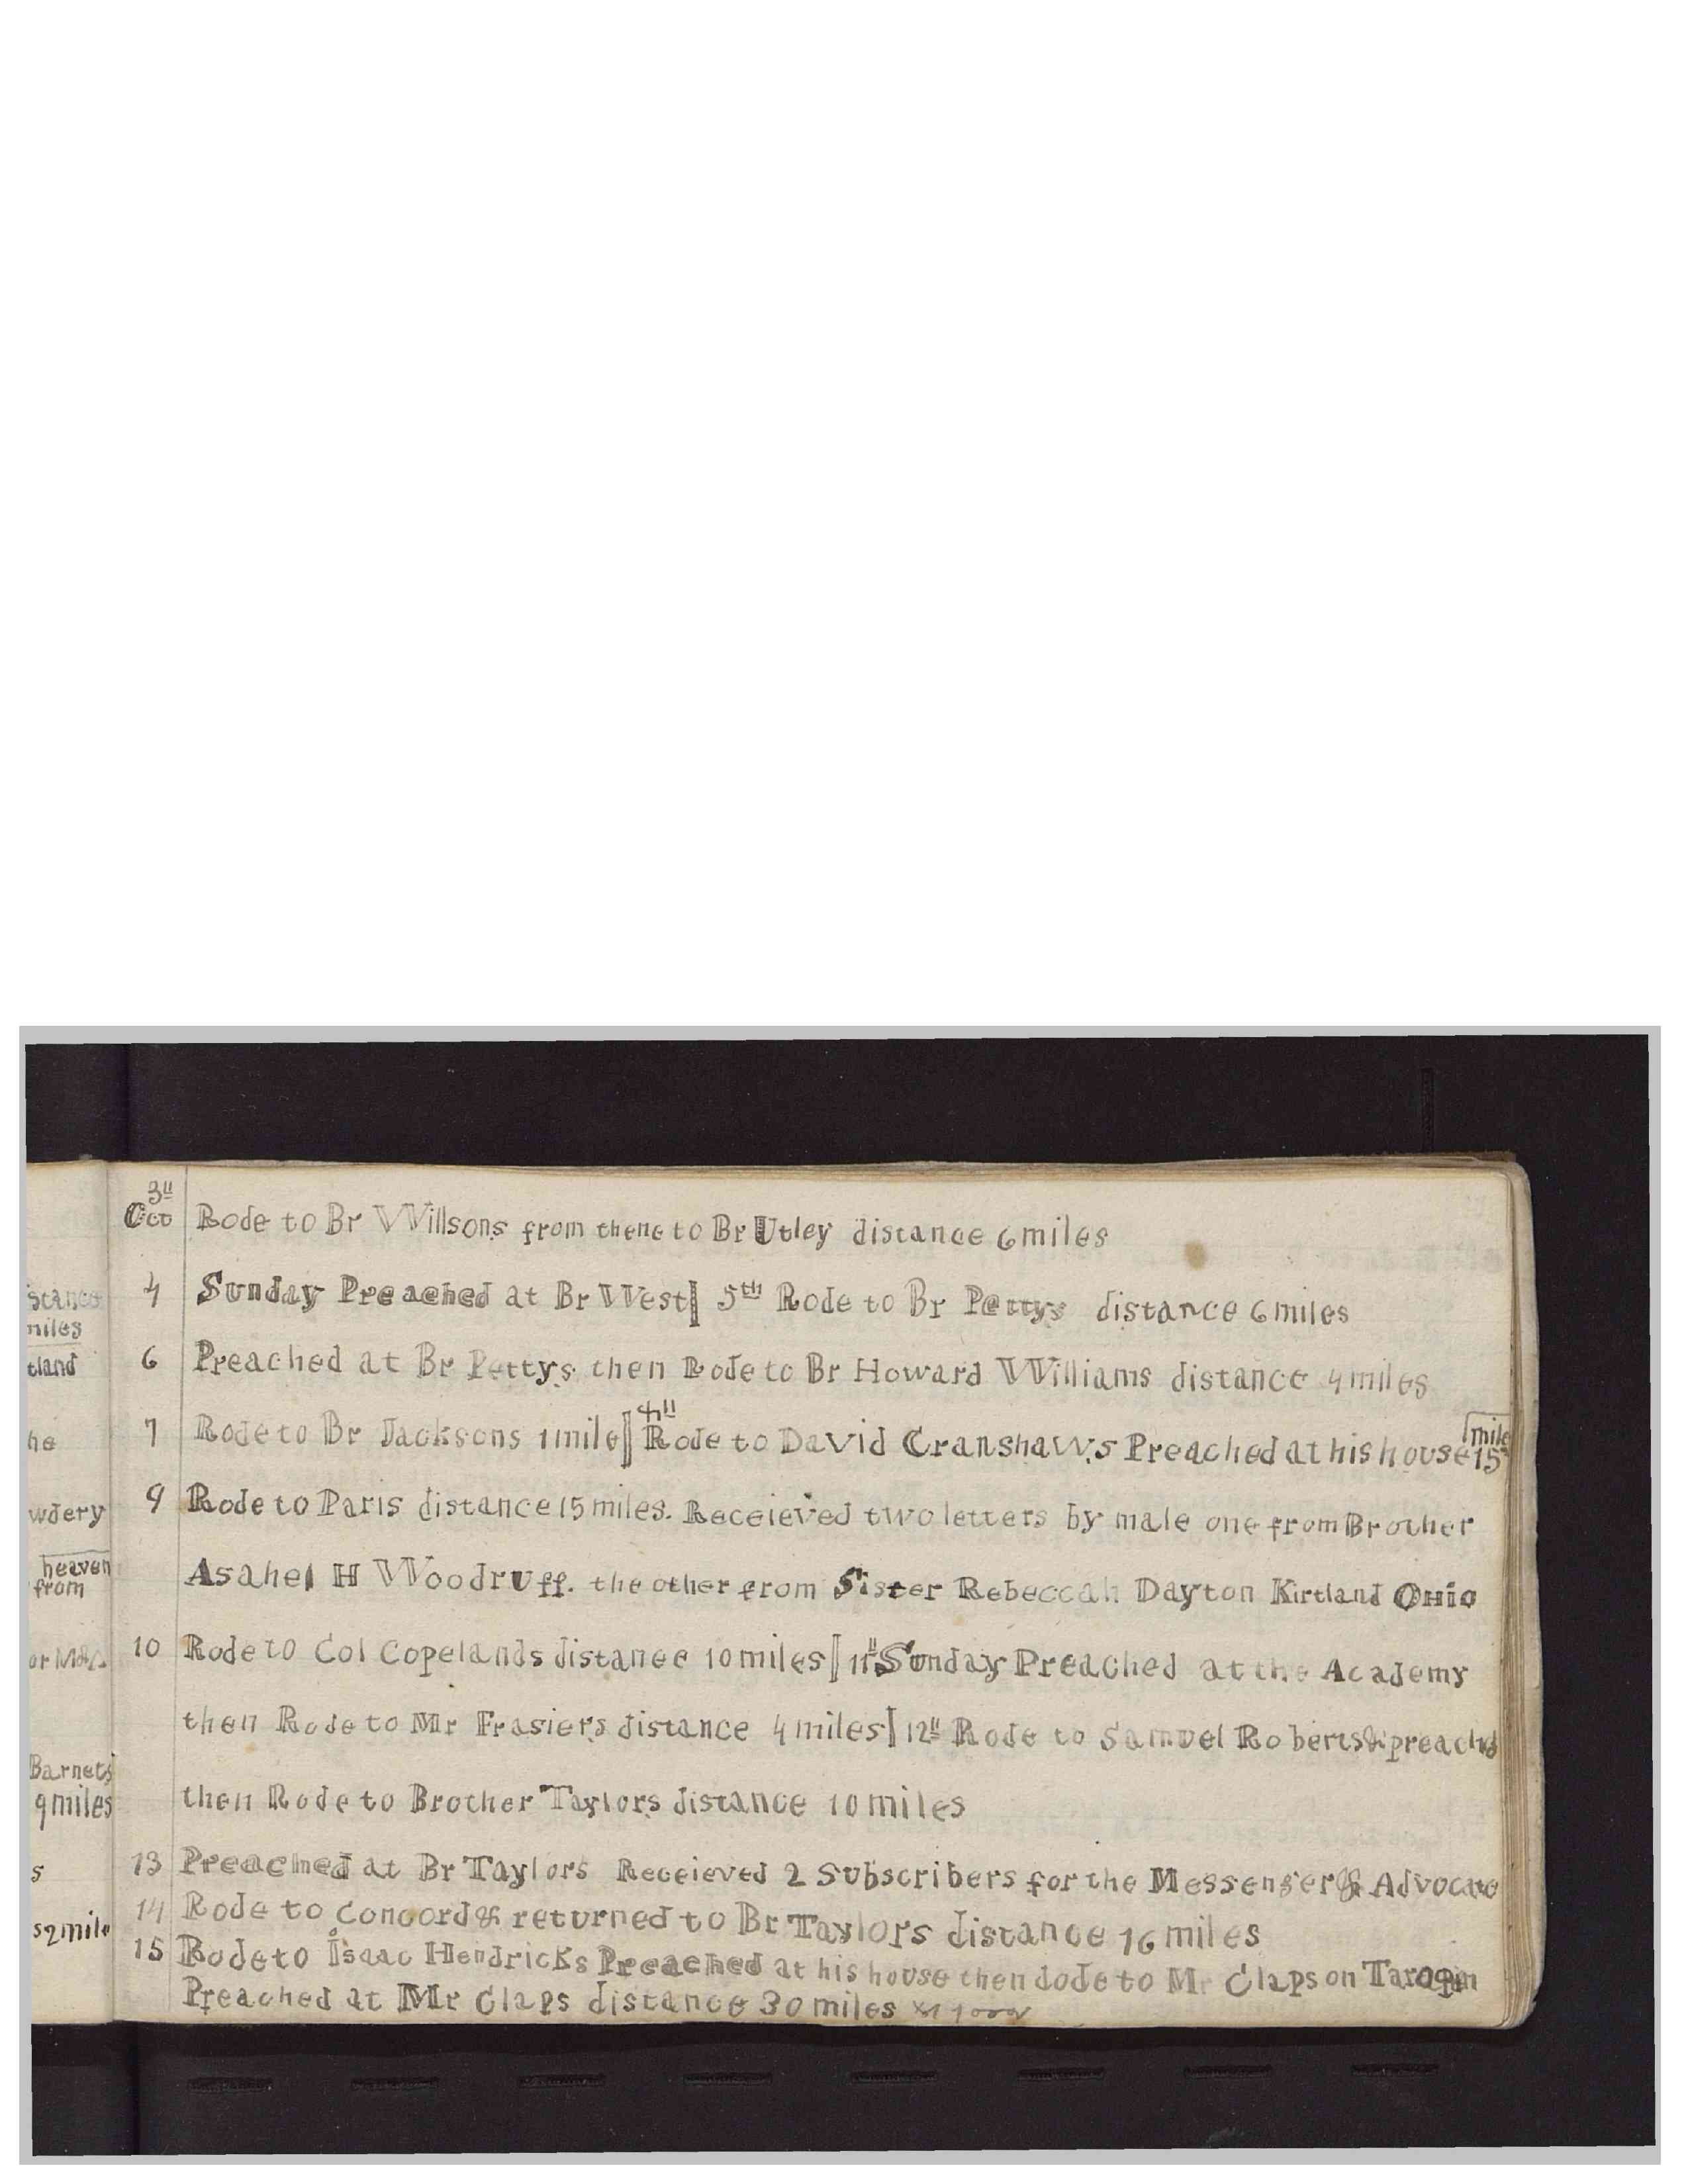 stance
miles
tland
he
wdery
heaven
from
or M&A.
Barnets
9 miles
s
s 2 mile
Oct 3" Rode to Br Willsons from thenc to Br Utley distance 6 miles
4 Sunday Preached at Br West || 5th Rode to Br Pettys distance 6 miles
6 Preached at Br Pettys then Rode to Br Howard Williams distance 4 miles
7 Rode to Br Jacksons 1 mile || Rode to David Cranshaws Preached at his house 15 mile
9 Rode to Paris distance 15 miles. Receieved two letters by male one from Brother
Asahel H Woodruff. the other from Sister Rebeccah Dayton Kirtland Ohio
10 Rode to Col Copelands distance 10 miles || 11" Sunday Preached at the Academy
then Rode to Mr Frasiers distance 4 miles || 12" Rode to Samuel Roberts & preachd
then Rode to Brother Taylors distance 10 miles
13 Preached at Br Taylors Receieved 2 Subscribers for the Messenger & Advocate
14 Rode to Concord & returned to Br Taylors distance 16 miles
15 Rode to Isaac Hendricks Preached at his house then dode to Mr Claps on Tarapin
Preached at Mr Claps distance 30 miles